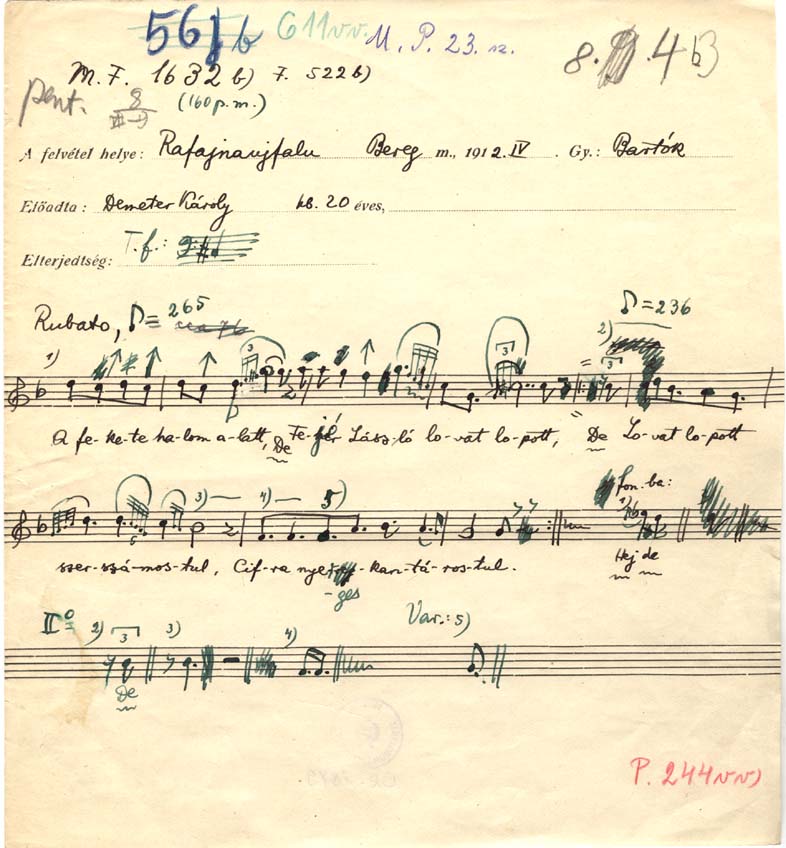 561 b 611 v.v. M. P. 23. sz. 8. 4 b
M. F. 1632 b) F. 522 b)
pent. 8 (160 p.m.)
A felvétel helye: Rafajnaujfalu Bereg m., 1912. IV. Gy.: Bartók
Előadta: Demeter Károly kb. 20 éves,
Elterjedtség: T. f.:
Rubato, ♪= 265 ♪=236
1) 3 3 2) 3
A fe-ke-te ha-lom a-latt, De Fe-jér Lász-ló lo-vat lo-pott, De Lo-vat lo-pott
3) 4) 5) fon. ba: 1)
szer-szá-mos-tul, Cif-ra nye-ges kan-tá-ros-tul. Hej de
II° 2) 3 3) 4) Var.: 5)
De
P. 244 v v)